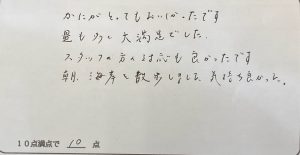 かにがとってもおいしかったです
量も多く大満足でした。
スタッフの方の対応も良かったです
朝、海岸を散歩しました。気持ち良かった。
10点満点で 10 点